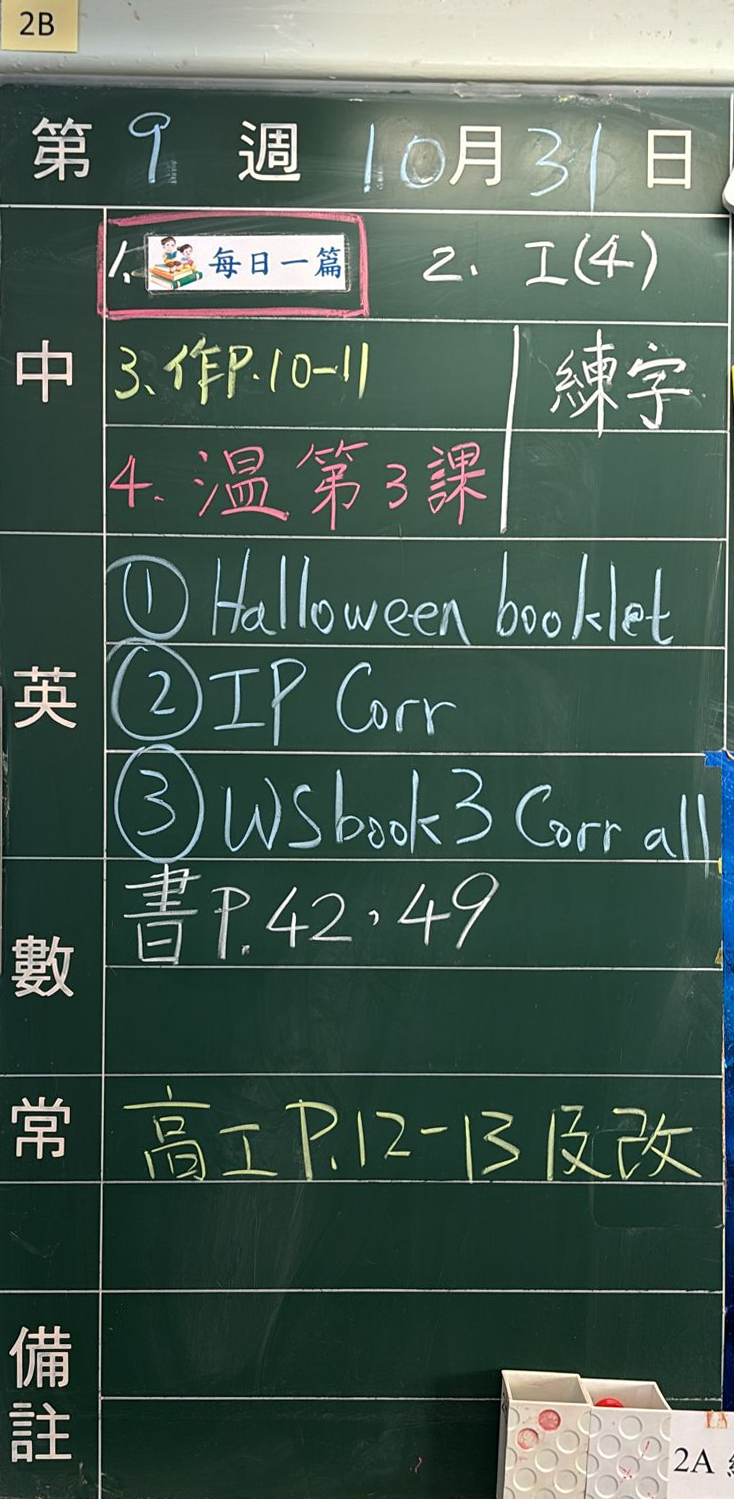 2B
第 9 週 10月31日
中
1. 每日一篇 2. 工(4)
3、作P.10-11 練字
4、温第3課
英
① Halloween booklet
② IP Corr
③ WSbook3 Corr all
數
書P.42,49
常
高工P.12-13及改
備註
2A